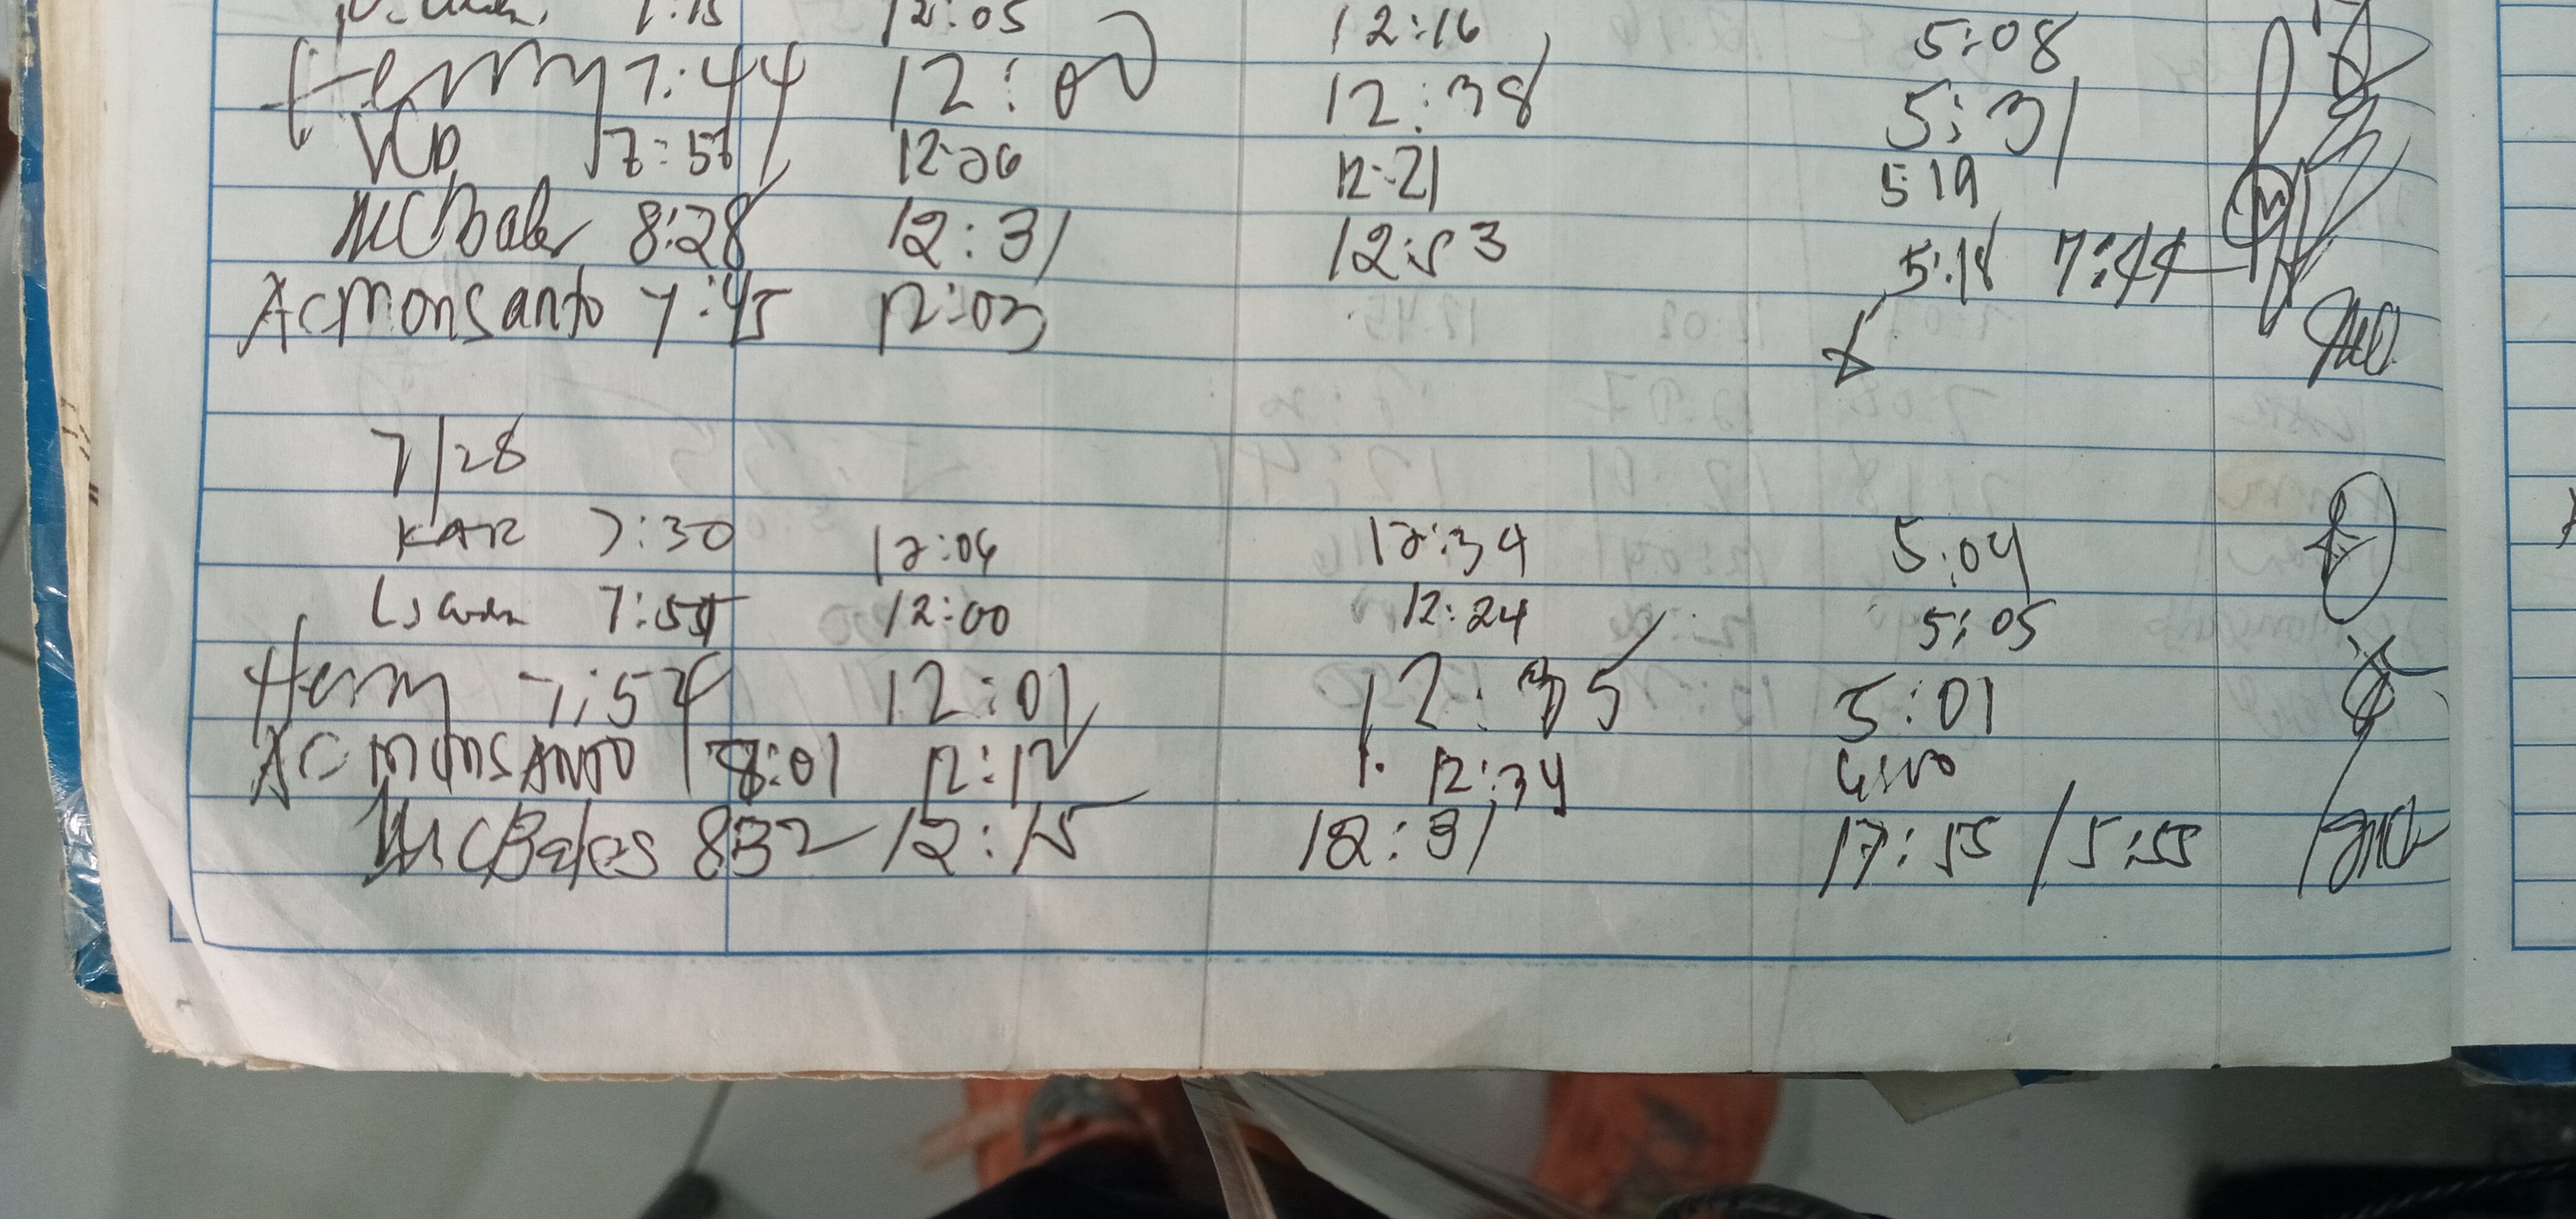 7:15 12:05 12:16 5:08
Henry 7:44 12:00 12:38 5:31
VCD 7:57 12:06 12:21 5:19
MCBales 8:28 12:31 12:53 5:18 7:44
ACMonsanto 7:45 12:03
7/28
KAR 7:30 12:04 12:34 5:04
7:55 12:00 12:24 5:05
Henry 7:54 12:01 12:35 5:01
AC MONSANTO 8:01 12:12 12:34
MCBales 832 12:15 12:31 17:55 / 5:55